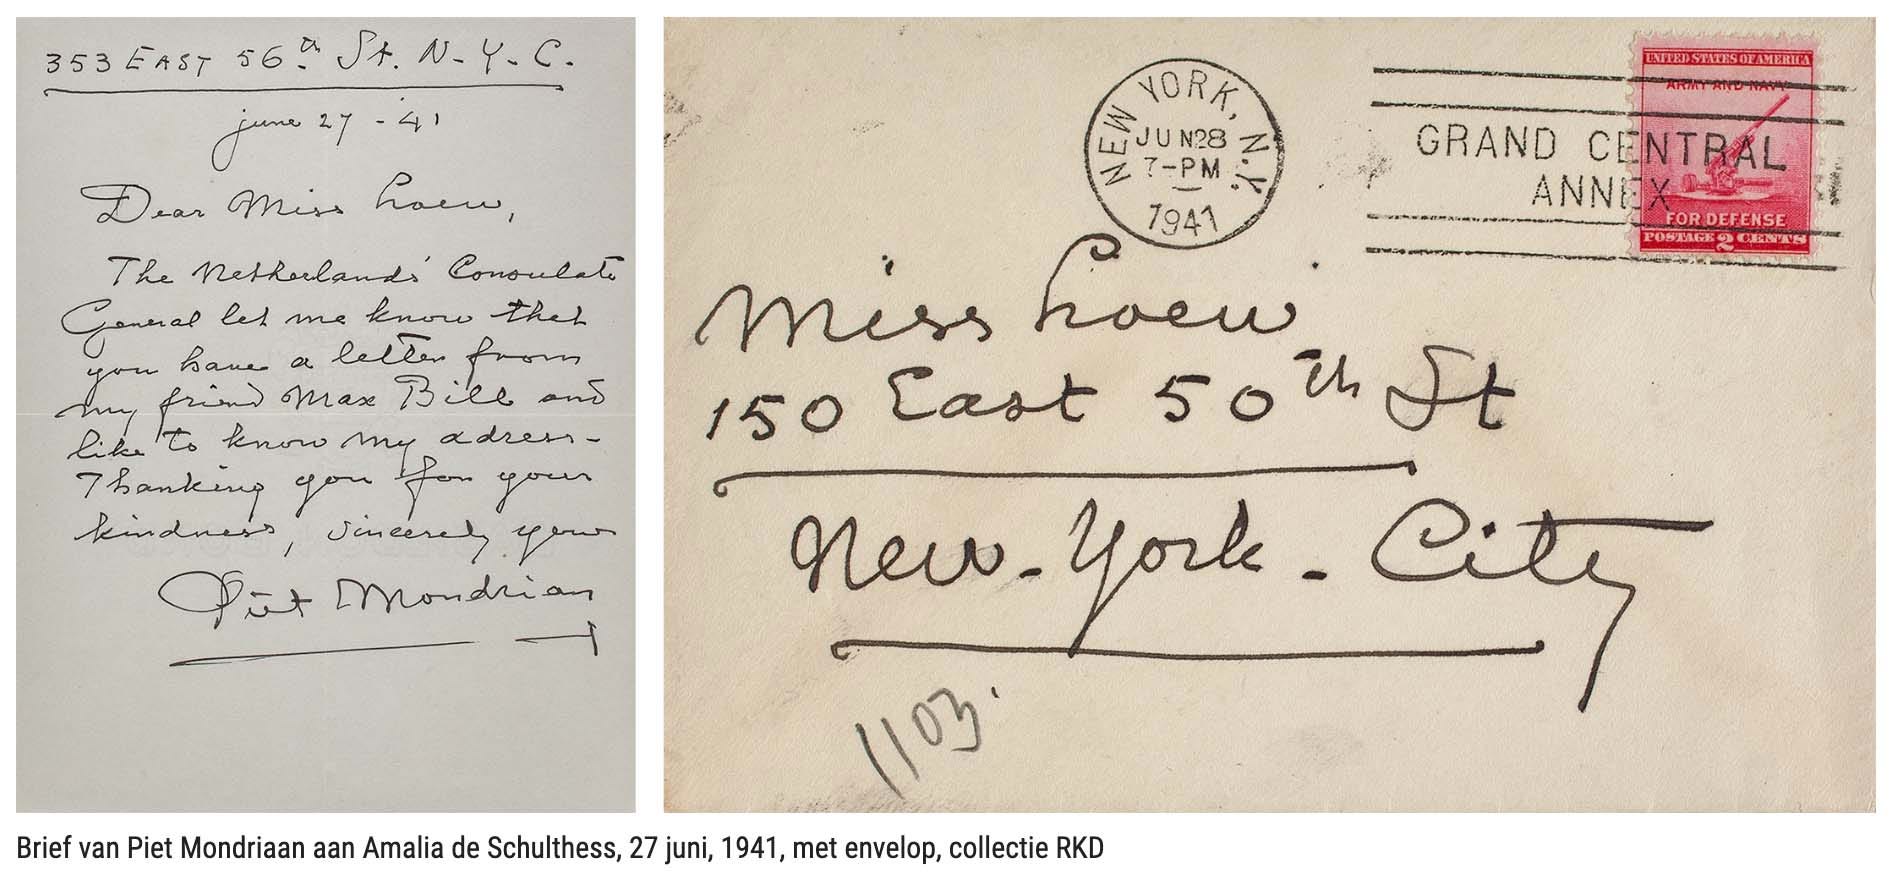 353 EAST 56th St. N-Y-C.
june 27 - '41
Dear Miss Loew,
The Netherlands' Consulate
General let me know that
you have a letter from
my friend Max Bill and
like to know my adress-
Thanking you for your
kindness, sincerely yours
Piet Mondrian
NEW YORK, N.Y.
JUN 28
7-PM
1941
GRAND CENTRAL
ANNEX
UNITED STATES OF AMERICA
ARMY AND NAVY
FOR DEFENSE
POSTAGE 2 CENTS
Miss Loew
150 East 50th St
New-York-City
1103.
Brief van Piet Mondriaan aan Amalia de Schulthess, 27 juni, 1941, met envelop, collectie RKD